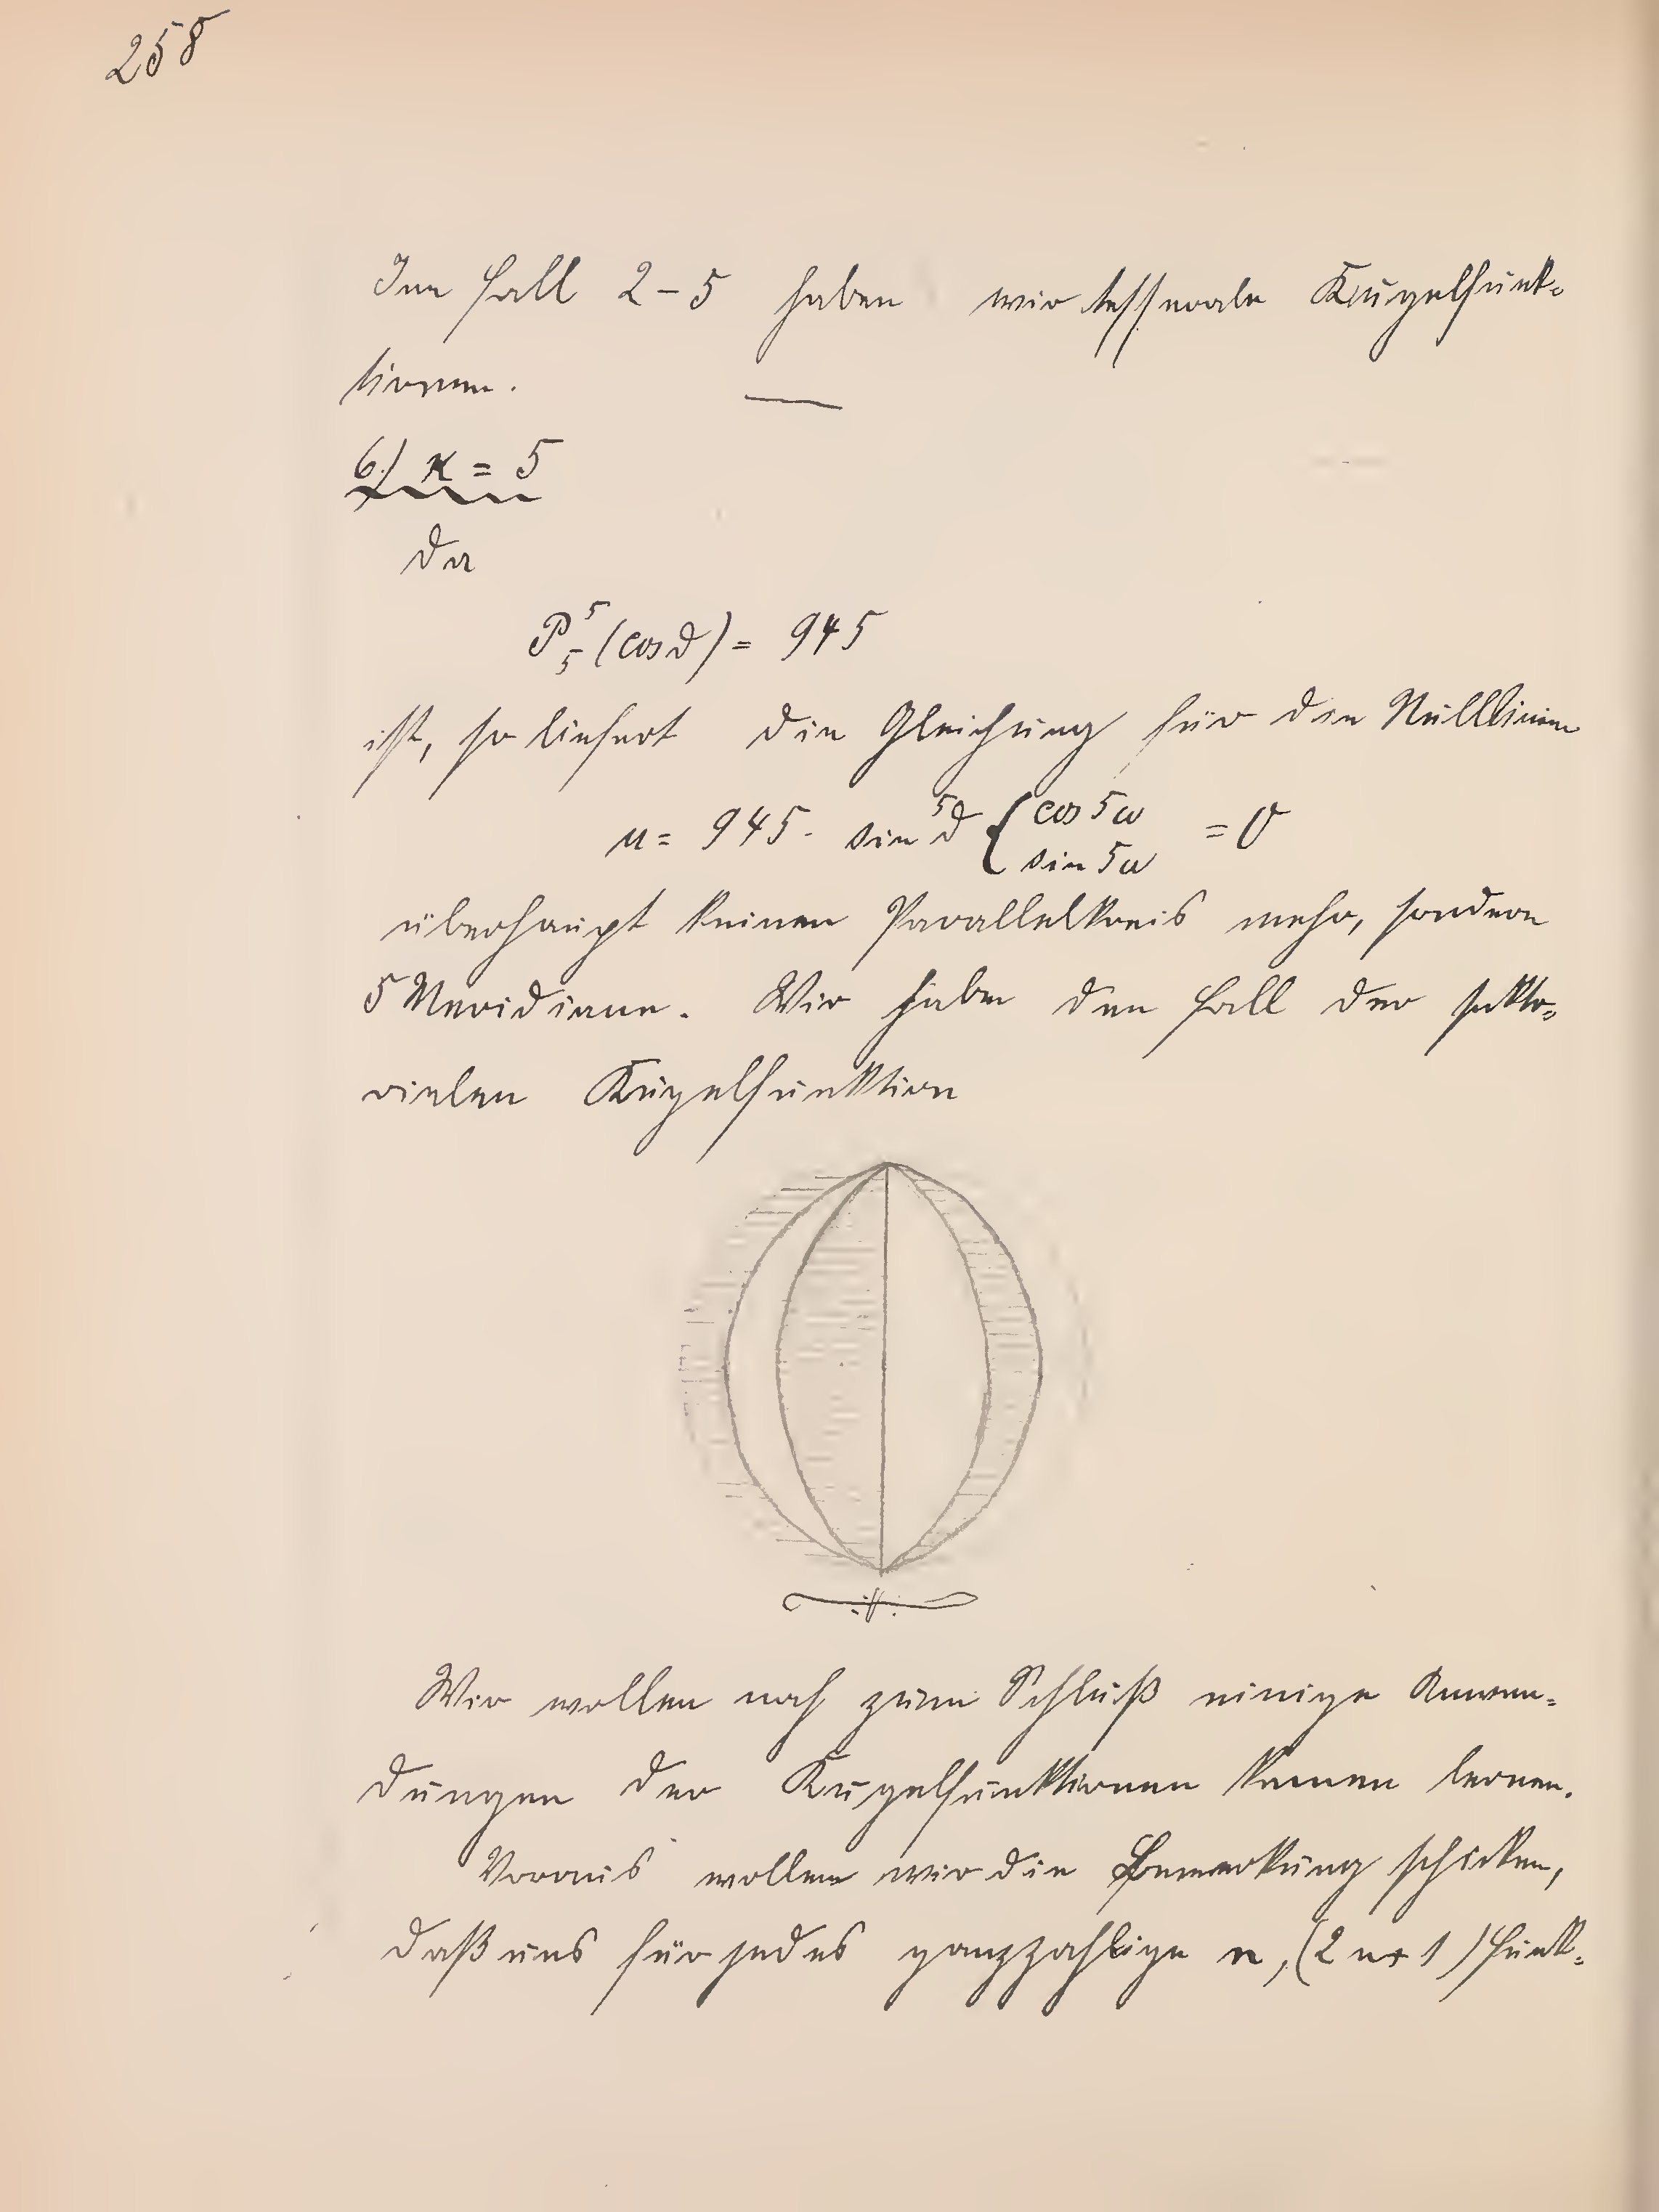 258
Im Fall 2-5 haben wir tesserale Kugelfunk-
tionen.
6.) κ = 5
Da
P₅⁵(cos ϑ) = 945
ist, so liefert die Gleichung für die Nulllinien
u = 945. sin⁵ϑ { cos 5ω = 0
sin 5ω
überhaupt keinen Parallelkreis mehr, sondern
5 Meridiane. Wir haben den Fall der sekto-
riellen Kugelfunktion
Wir wollen noch zum Schluß einige Anwen-
dungen der Kugelfunktionen kennen lernen.
Voraus wollen wir die Bemerkung schicken,
daß uns für jedes ganzzahlige n, (2n+1) Funk-